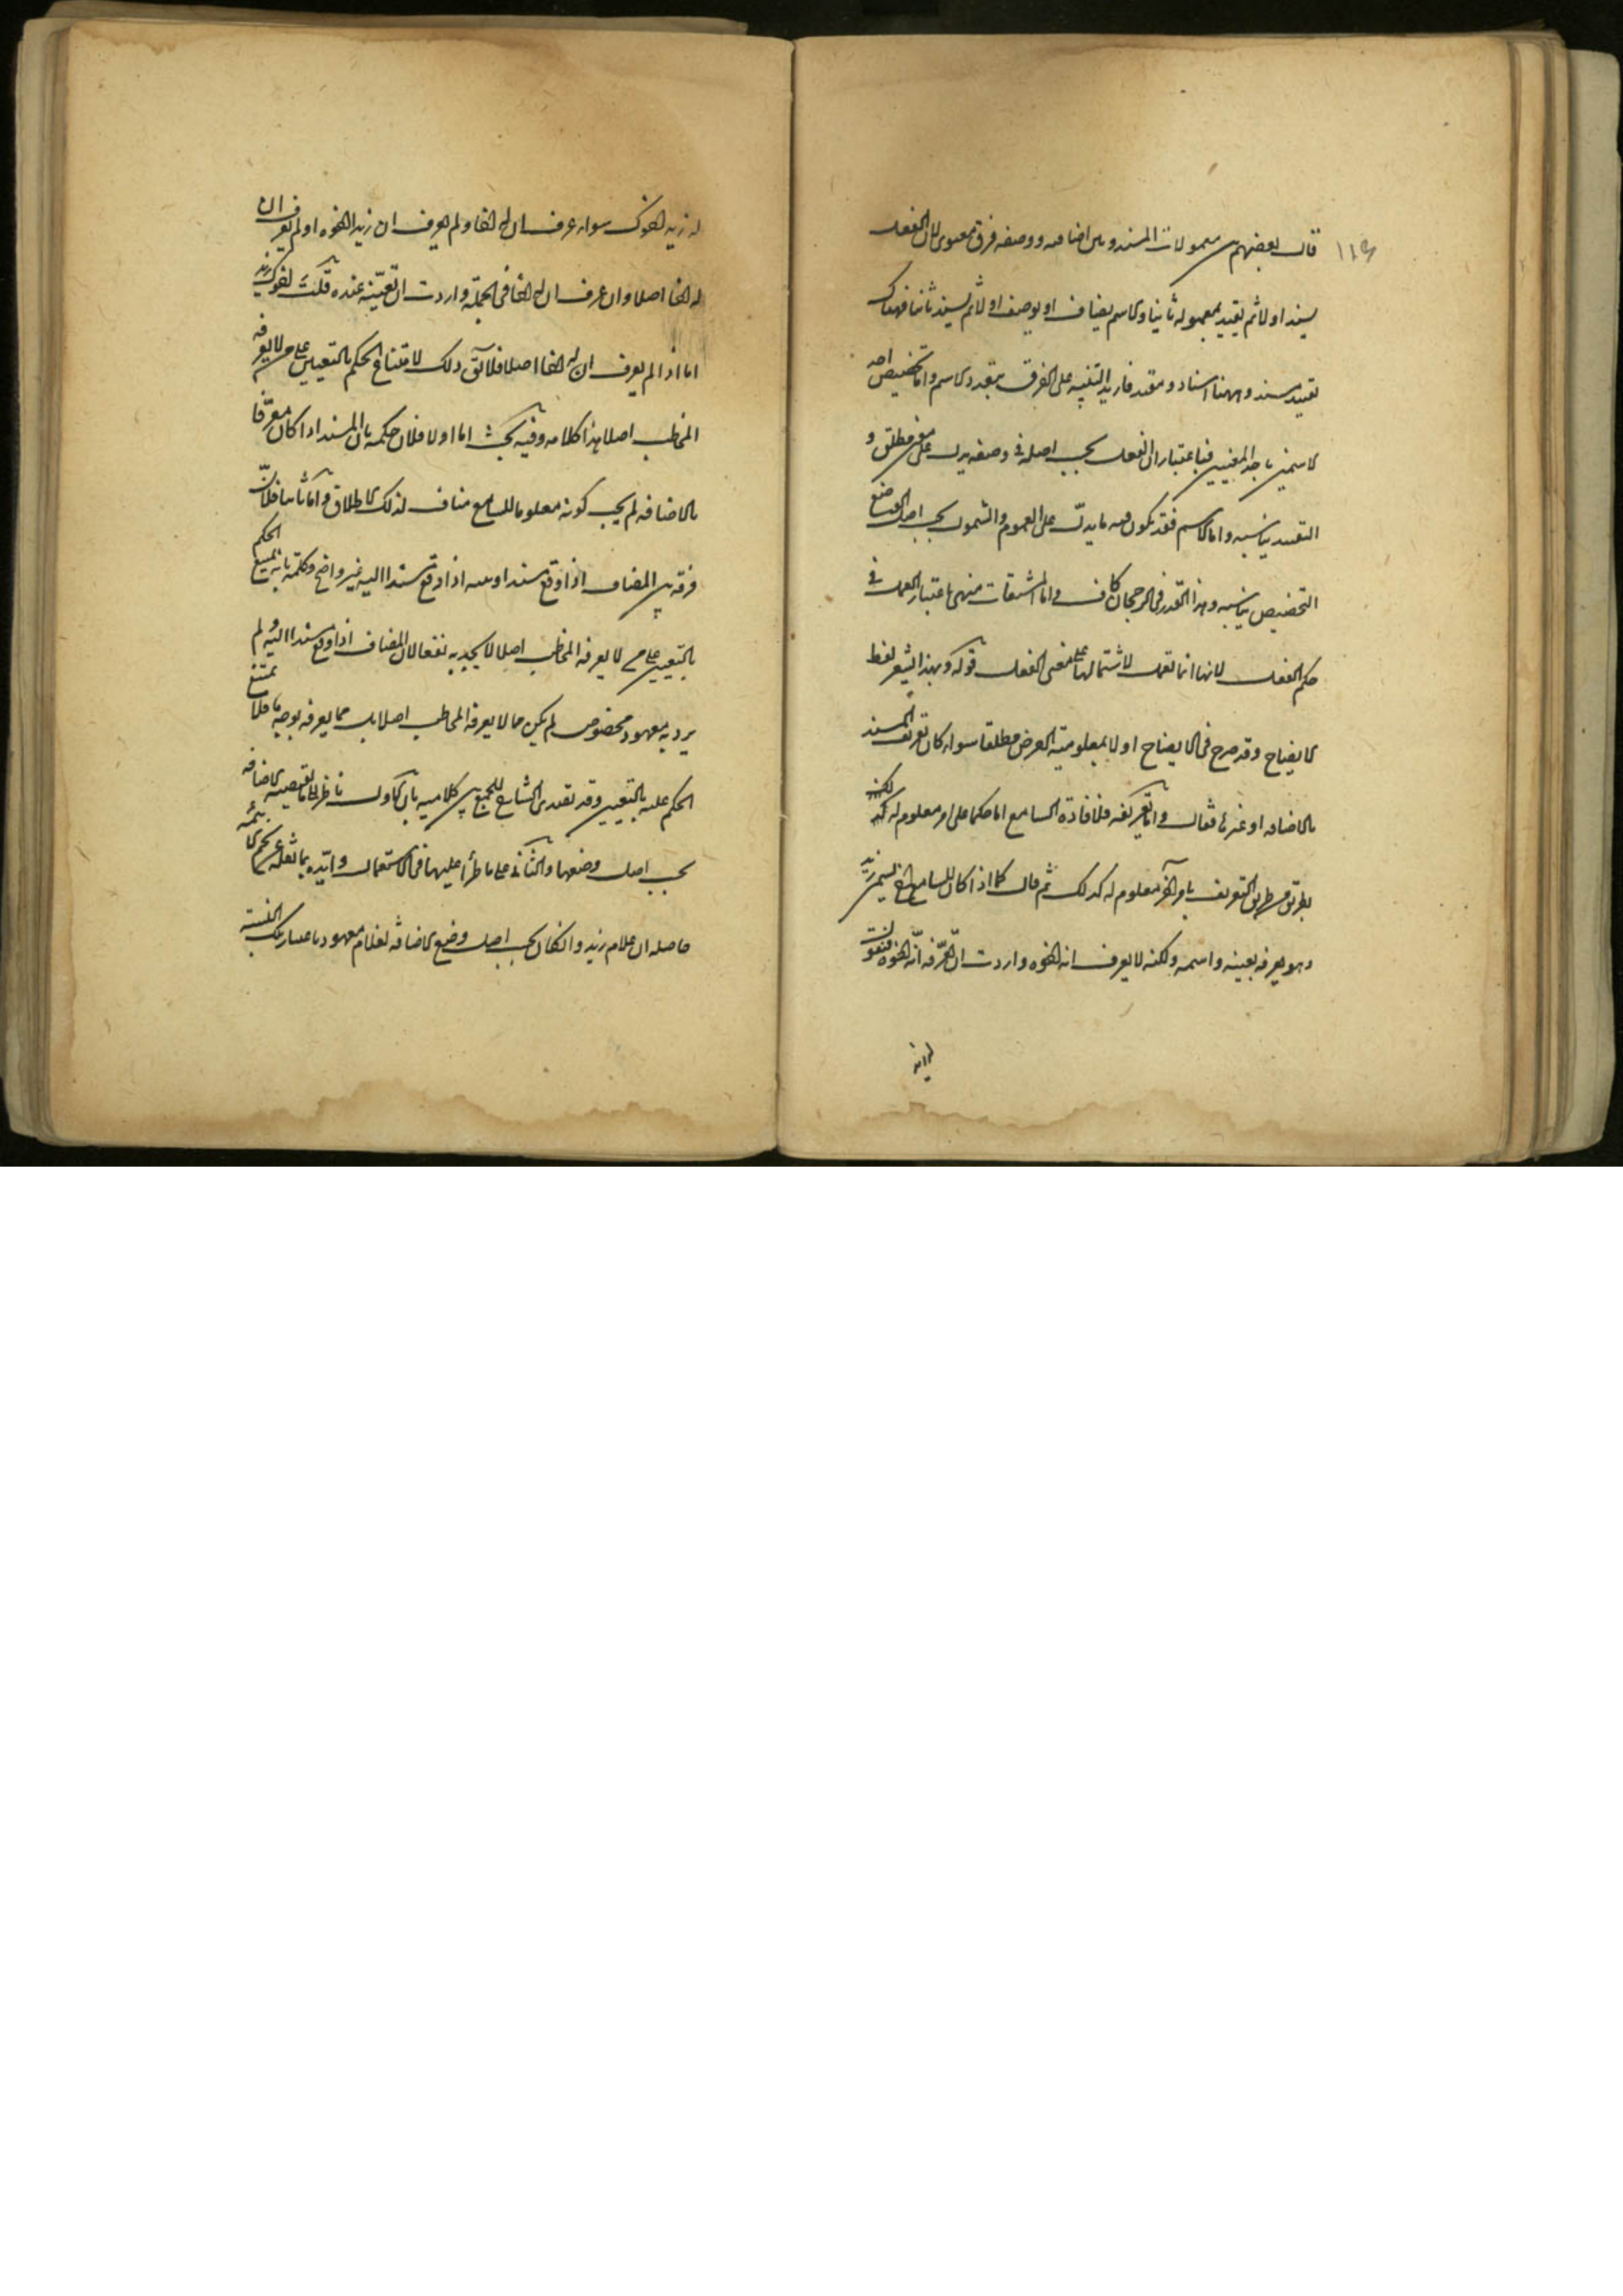 قال بعضهم بين معمولات المسند وبين اضافته ووصفه فرق معنوى لان الفعل
يسند اولا ثم يقيد بمعموله ثانيا والاسم يضاف او يوصف اولا ثم يسند ثانيا فهناك
تقييد مسند وههنا اسناد مقيد فاريد التنبيه على الفرق بتعدد الاسم واما تخصيص احد
الاسمين باحد المعنيين فباعتبار ان الفعل بحسب اصله فى وضعه يدل على معنى مطلق و
التقييد يناسبه واما الاسم فقد يكون فيه ما يدل على العموم والشمول بحسب اصل الوضع
التخصيص يناسبه وهذا القدر فى الرجحان كاف واما المشتقات فهى باعتبار العمل فى
حكم الفعل لانها انما تعمل لاشتمالها على معنى الفعل قوله وبهذا يشعر لفظ
الايضاح وقد صرح فى الايضاح اولا بمعلومية العرض مطلقا سواء كان تعريف المسند
بالاضافه او غيرها فقال واما تعريفه فلافادة السامع اما حكما على امر معلوم له
بطريق من طريق التعريف بامر آخر معلوم له كذلك ثم قال كما اذا كان للسامع اخ يسمى زيد
وهو يعرفه بعينه واسمه ولكنه لا يعرف انه اخوه واردت ان تعرفه انه اخوه فتقول
له زيد اخوك سواء عرف ان له اخا ولم يعرف ان زيدا اخوه او لم يعرف ان
له اخا اصلا وان عرف ان له اخا فى الجملة واردت ان تعينه عنده قلت اخوك زيد
اما اذا لم يعرف ان له اخا اصلا فلا يقال ذلك لامتناع الحكم بالتعيين على من لا يعرفه
المخاطب اصلا هذا كلامه وفيه بحث اما اولا فلان حكمه بان المسند اذا كان معرفا
بالاضافه لم يجب كونه معلوما للسامع مناف لذلك الاطلاق واما ثانيا فلان
فرقه بين المضاف اذا وقع مسندا وبينه اذا وقع مسندا اليه غير واضح وحكمه بانه يمتنع الحكم
بالتعيين على من لا يعرفه المخاطب اصلا لا يجديه نفعا لان المضاف اذا وقع مسندا اليه ولم
يرد به معهود مخصوص لم يكن مما لا يعرفه المخاطب اصلا بل مما يعرفه بوجه ما فلا يمتنع
الحكم عليه بالتعيين وقد تصدى الشارح للجمع بين كلاميه بان الاول ناظر الى ما تقتضيه الاضافه
بحسب اصل وضعها والثانى على ما طرأ عليها فى الاستعمال وايده بما نقله عن نجم الائمه
حاصله ان غلام زيد وان كان بحسب اصل وضع الاضافه لغلام معهود باعتبار تلك النسبة